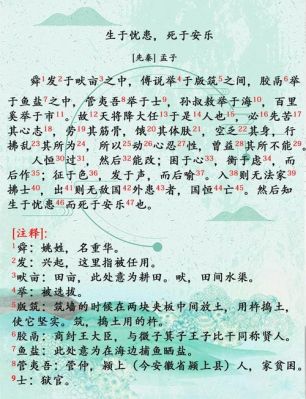 生于忧患，死于安乐
[先秦] 孟子
舜1发2于畎亩3之中，傅说举4于版筑5之间，胶鬲6举
于鱼盐7之中，管夷吾8举于士9，孙叔敖举于海10，百里
奚举于市11。故12天将降大任13于是14人也15，必16先苦17
其心志18，劳19其筋骨，饿20其体肤21，空乏22其身，行
拂乱23其所为24，所以25动26心忍27性，曾益28其所不能29
。人恒30过31，然后32能改；困于心33，衡于虑34，而
后作35；征于色36，发于声，而后喻37。入38则无法家39
拂士40，出41则无敌国42外患43者，国恒44亡45。然后知
生于忧患46而死于安乐47也。
[注释]：
1舜：姚姓，名重华。
2发：兴起，这里指被任用。
3畎亩：田亩，此处意为耕田。畎，田间水渠。
4举：被选拔。
5版筑：筑墙的时候在两块夹板中间放土，用杵捣土，
使它坚实。筑，捣土用的杵。
6胶鬲：商纣王大臣，与微子箕子王子比干同称贤人。
7鱼盐：此处意为在海边捕鱼晒盐。
8管夷吾：管仲，颍上（今安徽省颍上县）人，家贫困。
9士：狱官。